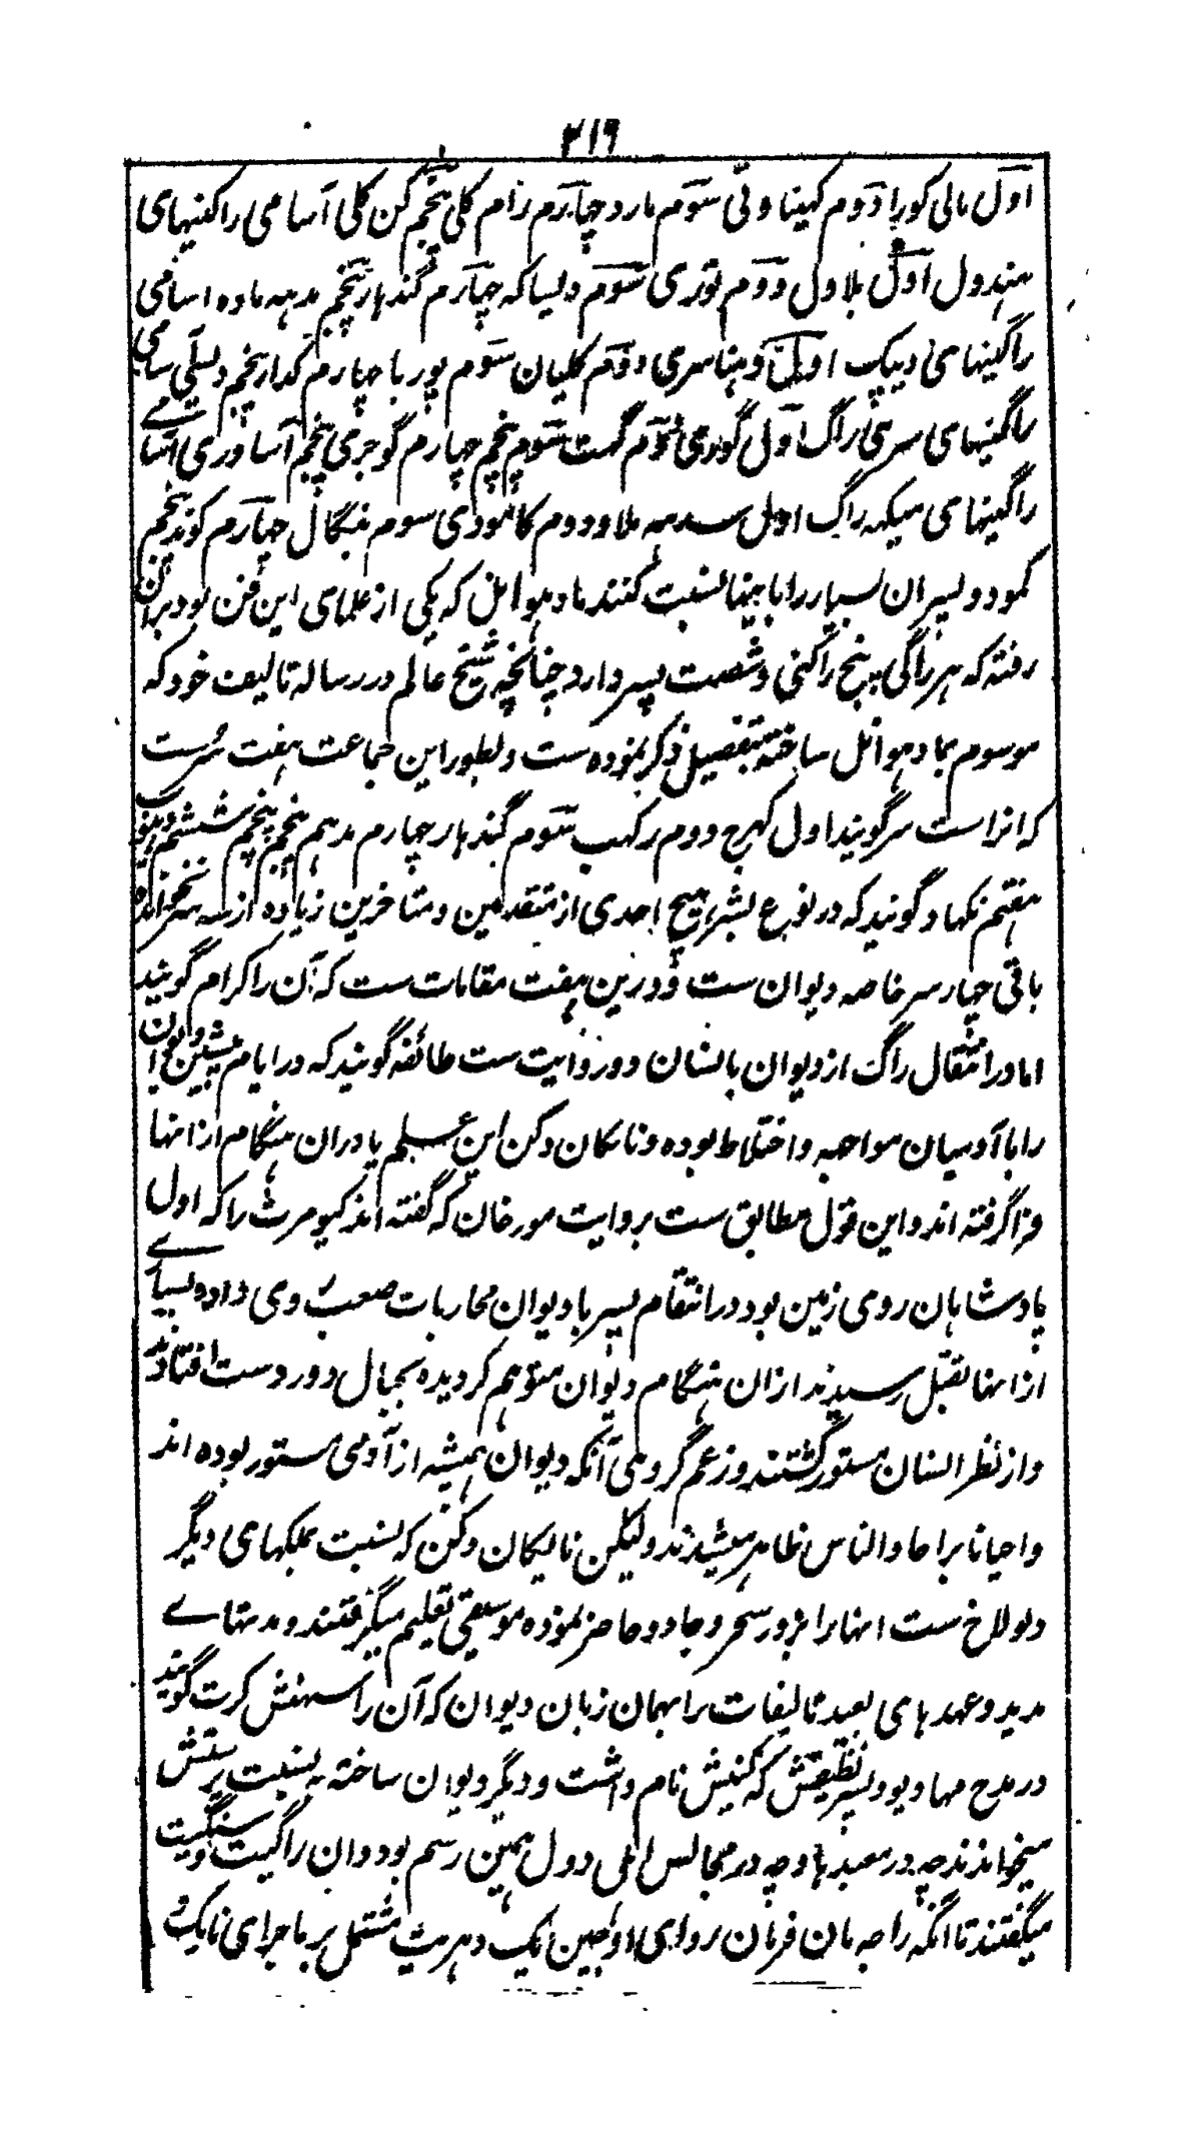 ۲۱۹
اول مالی کورا دوم کهنیاوتی سوم مارو چهارم رام کلی پنجم گن کلی آسامی راگنیهای
هندول اول بلاول دوم توری سوم دیساکه چهارم گندهار پنجم مدهه ماده اسامی
راگنیهای دیپک اول دهناسری دوم کلیان سوم پوربا چهارم کدارا پنجم دیسی اسامی
راگنیهای سری راگ اول گودی دوم گهت سوم پنچم چهارم گوجری پنجم آساوری اسامی
راگنیهای میگهه راگ اول سدهه ملار دوم کامودی سوم بنگال چهارم کوند پنجم
کمود و پسران بسیار را باینها نسبت کنند مادهوانل که یکی از علمای این فن بود بران
رفته که هر راگی پنج راگنی و شصت پسر دارد چنانچه شیخ عالم در رساله تالیف خود که
موسوم بمادهوانل ساخته بتفصیل ذکر نموده ست و بطور این جماعت هفت سرست
که انرا ست سر گویند اول کهرج دوم رکهب سوم گندهار چهارم مدهم پنجم پنچم ششم دهیوت
هفتم نکهاد گویند که در نوع بشر هیچ احدی از متقدمین و متاخرین زیاده از سه سر نخوانده
باقی چهار سر خاصه دیوان ست و درین هفت مقامات ست که آن را کرام گویند
اما در انتقال راگ از دیوان بانسان دو روایت ست طائفه گویند که در ایام پیشین دیوان
را با آدمیان مواجهه و اختلاط بوده و نایکان دکن این علم یا دران هنگام از انها
فرا گرفته اند و این قول مطابق ست بروایت مورخان که گفته اند کیومرث را که اول
پادشاهان روی زمین بود در انتقام پسر با دیوان محاربات صعب روی داده بسیاری
از انها بقتل رسیدند ازان هنگام دیوان متوهم گردیده بجبال دور دست افتادند
و از نظر انسان مستور گشتند و زعم گروهی آنکه دیوان همیشه از آدمی مستور بوده اند
و احیانا بر احاد الناس ظاهر میشدند ولیکن نایکان دکن که نسبت بملکهای دیگر
دیولاخ ست انها را بزور سحر و جادو حاضر نموده موسیقی تعلیم میگرفتند و مدتهای
مدید و عهدهای بعید تالیفات را بهمان زبان دیوان که آن را سهنش کرت گویند
در مدح مهادیو و پسر نظیفش که گنیش نام داشت و دیگر دیوان ساخته به نسبت پرستش
میخواندند چه در معبدها و چه در مجالس اهل دول همین رسم بود و ان را گیت و سنگیت
میگفتند تا انکه راجه مان فرمان روای اوجین یک دهرپت مشتمل بر ماجرای نایک و